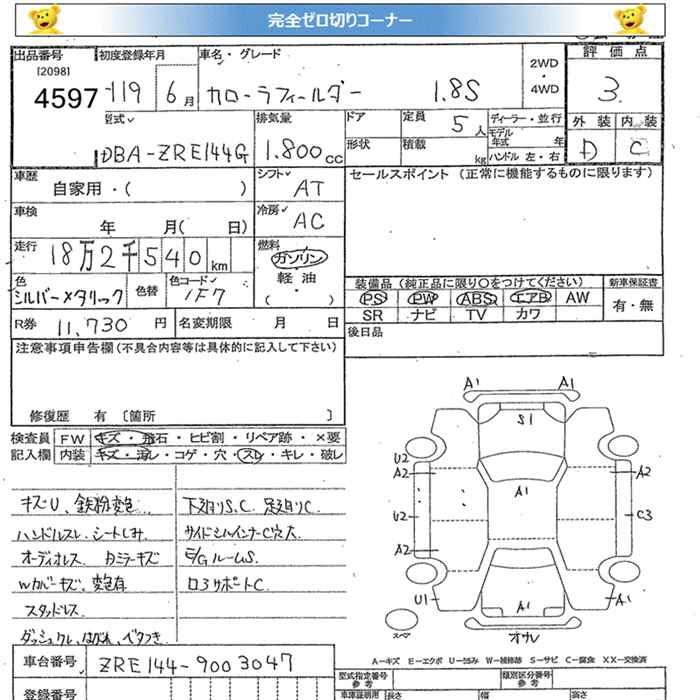 完全ゼロ切りコーナー
出品番号 初度登録年月 車名・グレード 2WD・4WD 評価点
[2098]
4597 H19 6月 カローラフィールダー 1.8S 3
型式 排気量 ドア 定員 5人 ディーラー・並行 外装 内装
DBA-ZRE144G 1.800cc 形状 積載 kg モデル年式 年 ハンドル 左・右 D C
車歴 シフト セールスポイント (正常に機能するものに限ります)
自家用・( ) AT
車検 年 月( 日) 冷房 AC
走行 18万2千540km 燃料 ガソリン
軽油
( ・ )
色 色替 色コード 装備品 (純正品に限り○をつけてください) 新車保証書
シルバーメタリック 1F7 PS PW ABS エアB AW 有・無
SR ナビ TV カワ
R券 11,730円 名変期限 月 日 後日品
注意事項申告欄(不具合内容等は具体的に記入して下さい)
修復歴 有 [箇所 ]
検査員 FW キズ・飛石・ヒビ割・リペア跡・×要
記入欄 内装 キズ・汚レ・コゲ・穴・スレ・キレ・破レ
キズU、鉄粉変色
ハンドルスレ、シートしみ
オーディオレス
Wカバーキズ、変色有
スタッドレス
下廻りS.C. 足廻りC
サイドシルインナーC穴大
E/GルームS
コアサポートC
A1 A1
S1
U2
A2 A1 A2
U2 C3
A2
U1 A1 A1
スペア オナレ
A-キズ E-エクボ U-凹み W-補修跡 S-サビ C-腐食 XX-交換済
車台番号 ZRE144-9003047
型式指定番号 参考 類別区分番号 参考
登録番号 車庫証明用 長さ 幅 高さ